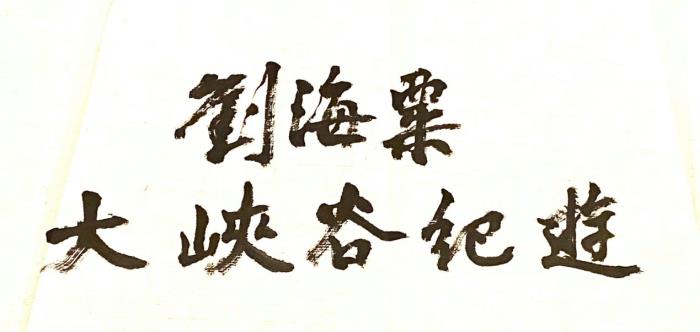 劉海粟
大峽谷紀遊